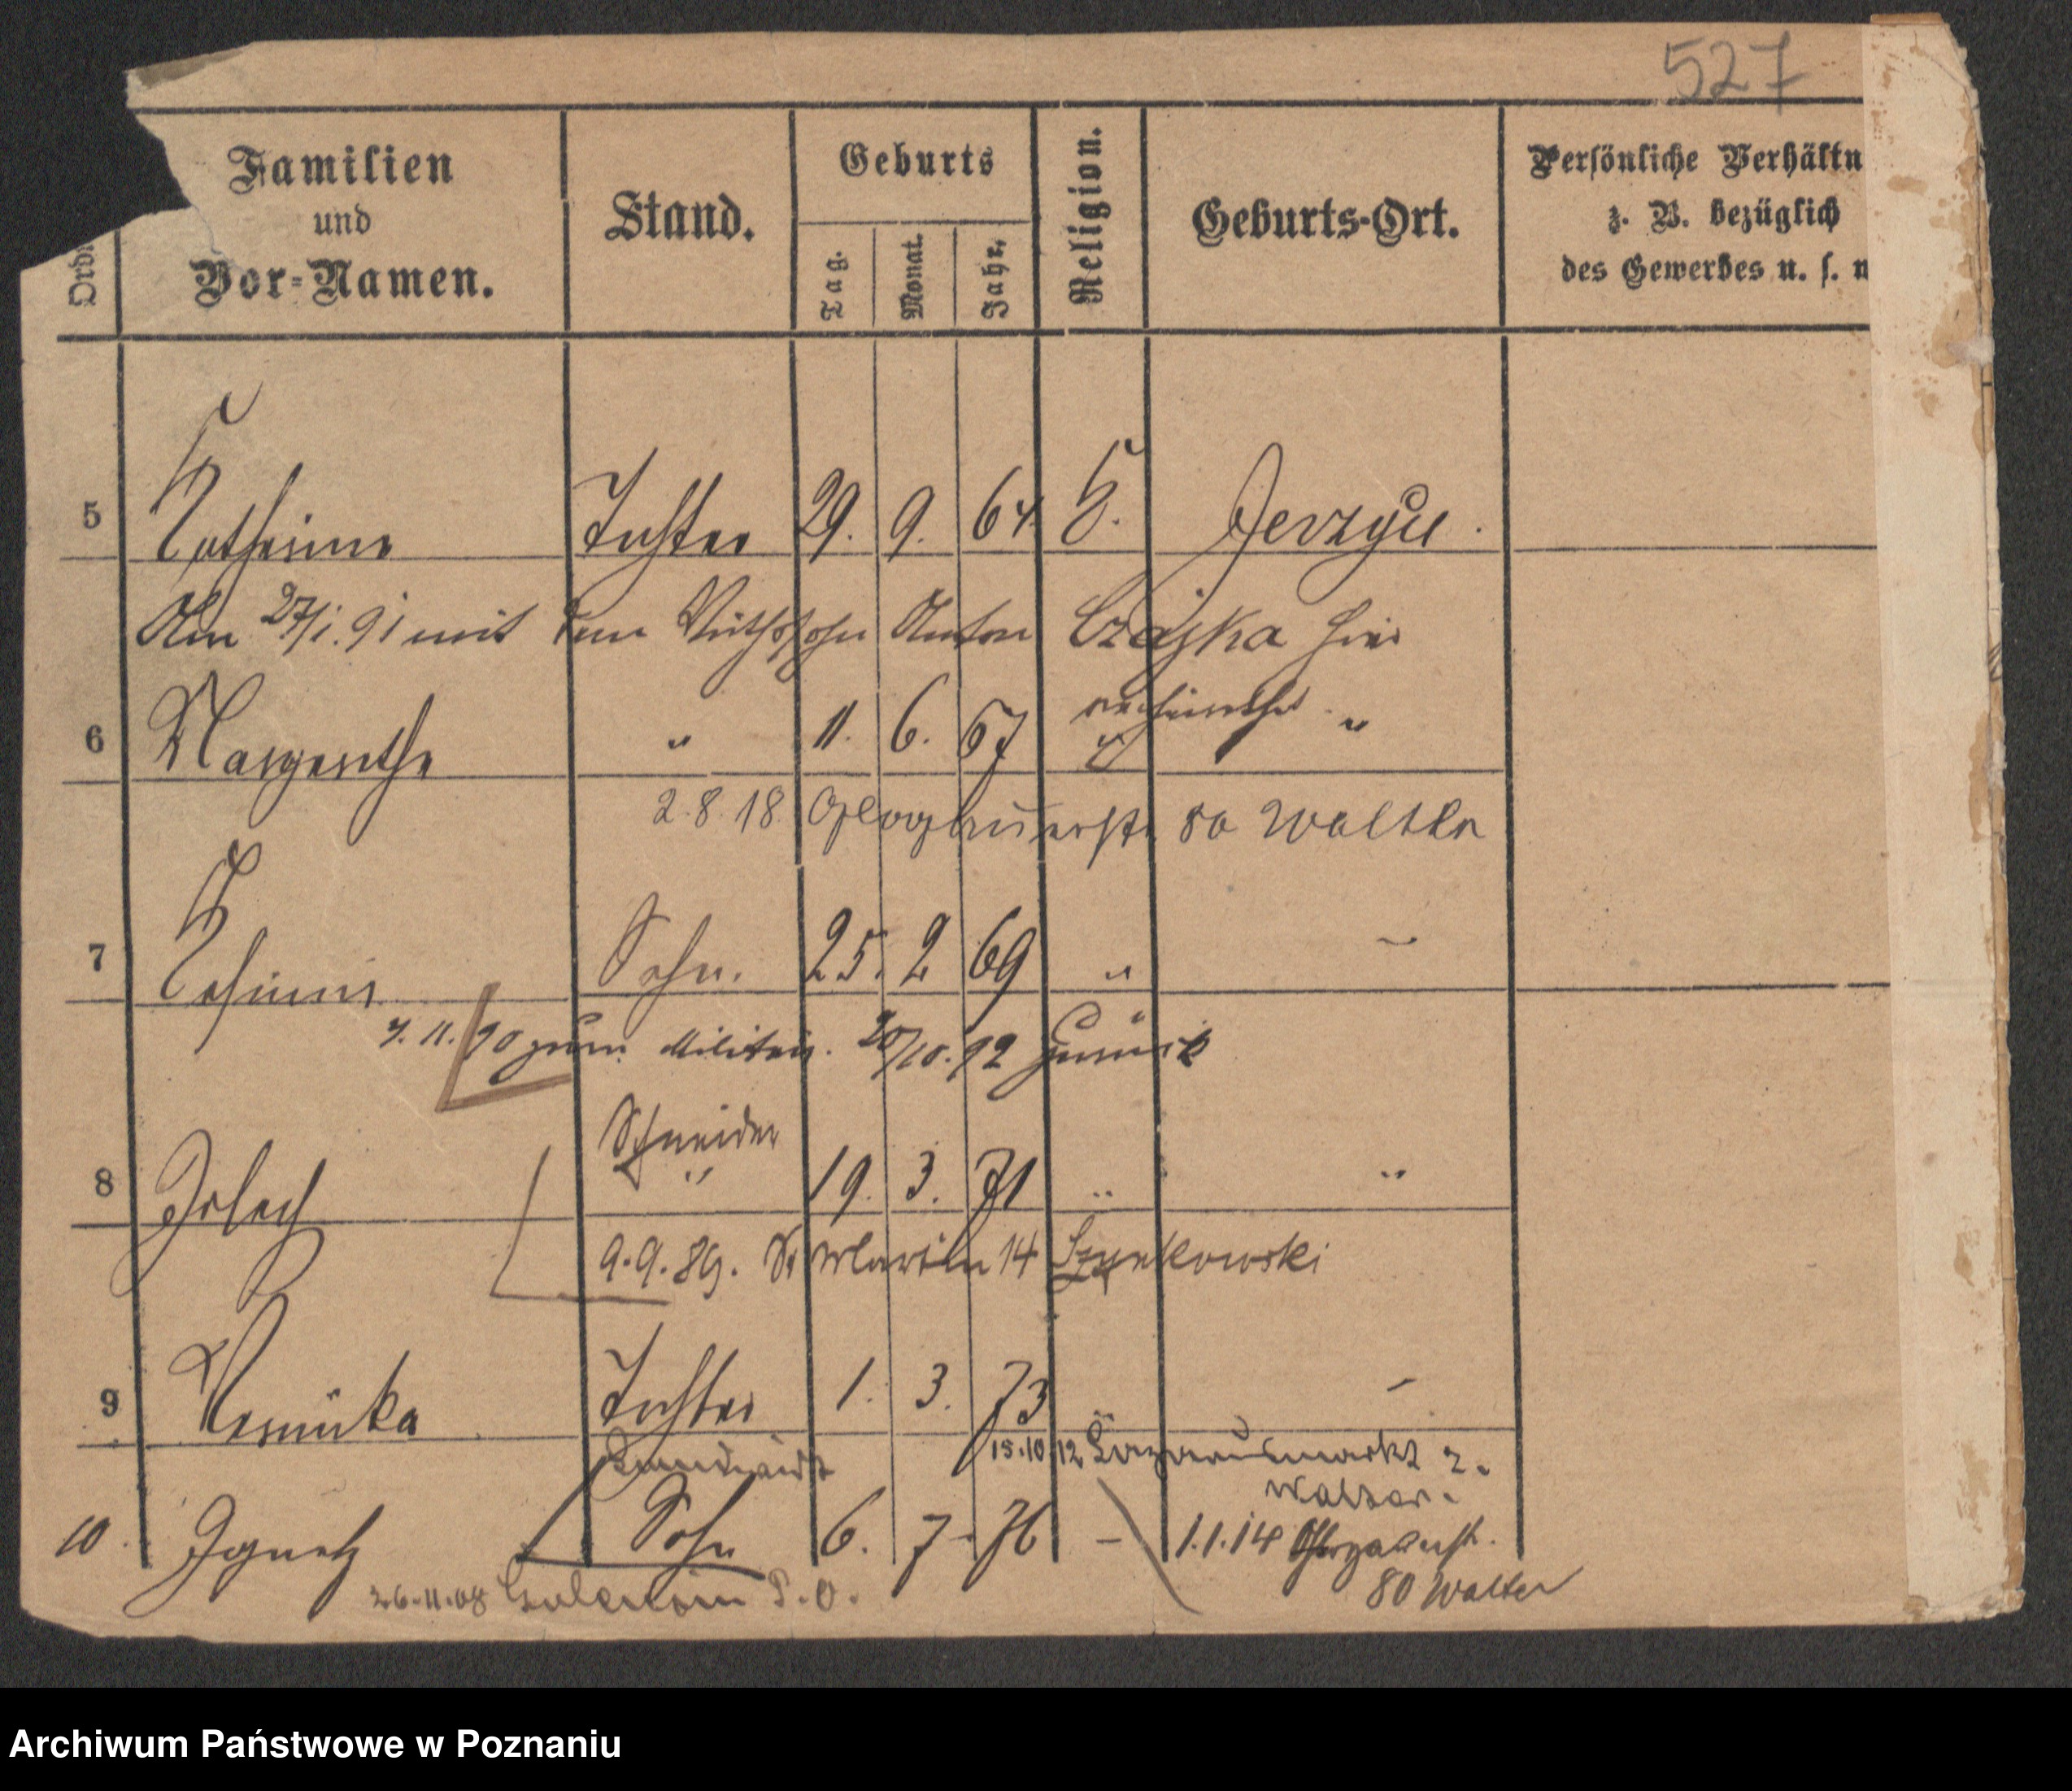 527
Familien
und
Vor-Namen.
Stand.
Geburts
Tag.
Monat.
Jahr.
Religion.
Geburts-Ort.
Persönliche Verhältn
z. B. bezüglich
des Gewerbes u. s. w
Ord
5 Katharina Tochter 29. 9. 64. k. Jerzyce.
Am 27/1. 91 mit dem Anton Czajka hier
verheirathet
6 Margarethe " 11. 6. 67 " "
2.8.18 Glogauerstr. 80 Walter
7 Sohn. 25. 2 69 "
7. 11. 90 zum Militär. 20/10. 92 zurück
Schneider
8 Joseph " 19. 3. 71 " "
9.9.89. St Martin 14 Szynkowski
9 Veronika Tochter 1. 3. 73 "
15.10.12 Lazarusmarkt 2.
Walter.
10. Ignatz Sohn 6. 7. 76 - 1.1.14 80 Walter
26.11.08 P.O.
Archiwum Państwowe w Poznaniu